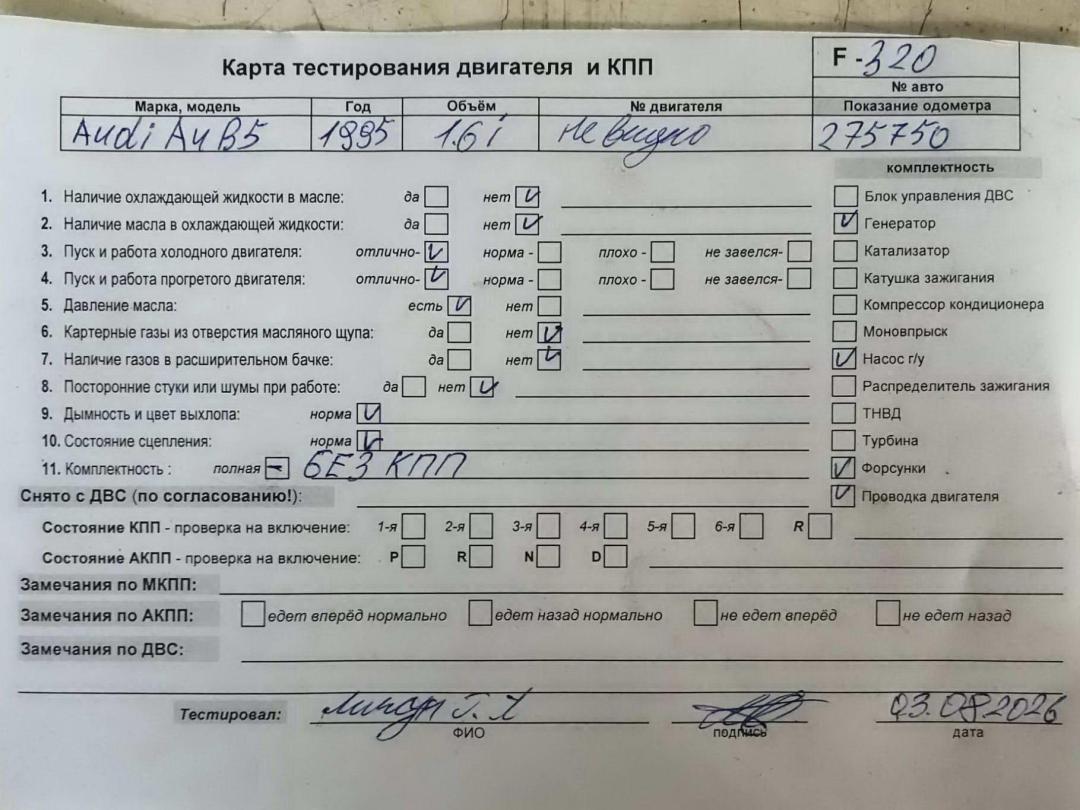 Карта тестирования двигателя и КПП
F -320
№ авто
Марка, модель Год Объём № двигателя Показание одометра
Audi A4 B5 1995 1.6i не видно 275750
комплектность
1. Наличие охлаждающей жидкости в масле: да нет
Блок управления ДВС
2. Наличие масла в охлаждающей жидкости: да нет
Генератор
3. Пуск и работа холодного двигателя: отлично- норма - плохо - не завелся-
Катализатор
4. Пуск и работа прогретого двигателя: отлично- норма - плохо - не завелся-
Катушка зажигания
5. Давление масла: есть нет
Компрессор кондиционера
6. Картерные газы из отверстия масляного щупа: да нет
Моновпрыск
7. Наличие газов в расширительном бачке: да нет
Насос г/у
8. Посторонние стуки или шумы при работе: да нет
Распределитель зажигания
9. Дымность и цвет выхлопа: норма
ТНВД
10. Состояние сцепления: норма
Турбина
11. Комплектность : полная БЕЗ КПП
Форсунки
Снято с ДВС (по согласованию!):
Проводка двигателя
Состояние КПП - проверка на включение: 1-я 2-я 3-я 4-я 5-я 6-я R
Состояние АКПП - проверка на включение: P R N D
Замечания по МКПП:
Замечания по АКПП: едет вперёд нормально едет назад нормально не едет вперёд не едет назад
Замечания по ДВС:
Тестировал: Г.Х 03.08.2026
ФИО подпись дата